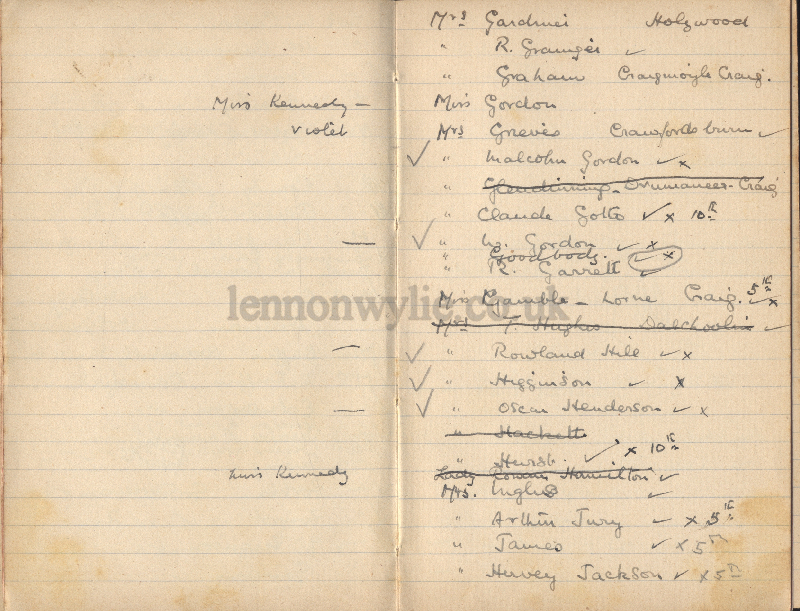 Miss Kennedy –
Violet
Miss Kennedy
Mrs Gardner Holywood
" R. Grainger ✓
" Graham Craigmoyle Craig.
Miss Gordon
Mrs Greves Crawfordsburn ✓
✓ " Malcolm Gordon ✓ x
" Glendinning – Drumaneer – Craig
" Claude Gotto ✓ x 10th
✓ " W. Gordon ✓ x
" Goodbody. ✓ x
" R. Garrett ✓
Miss Gamble – Lorne Craig. 5th ✓ x
Mrs T. Hughes Dalchoolin ✓
✓ " Rowland Hill ✓ x
✓ " Higginson ✓ x
✓ " Oscar Henderson ✓ x
" Hackett
" Hurst. ✓ x 10th
Lady Hamilton ✓
Mrs. Inglis ✓
" Arthur Jury ✓ x 5th
" James ✓ x 5th
" Hervey Jackson ✓ x 5th
lennonwylie.co.uk